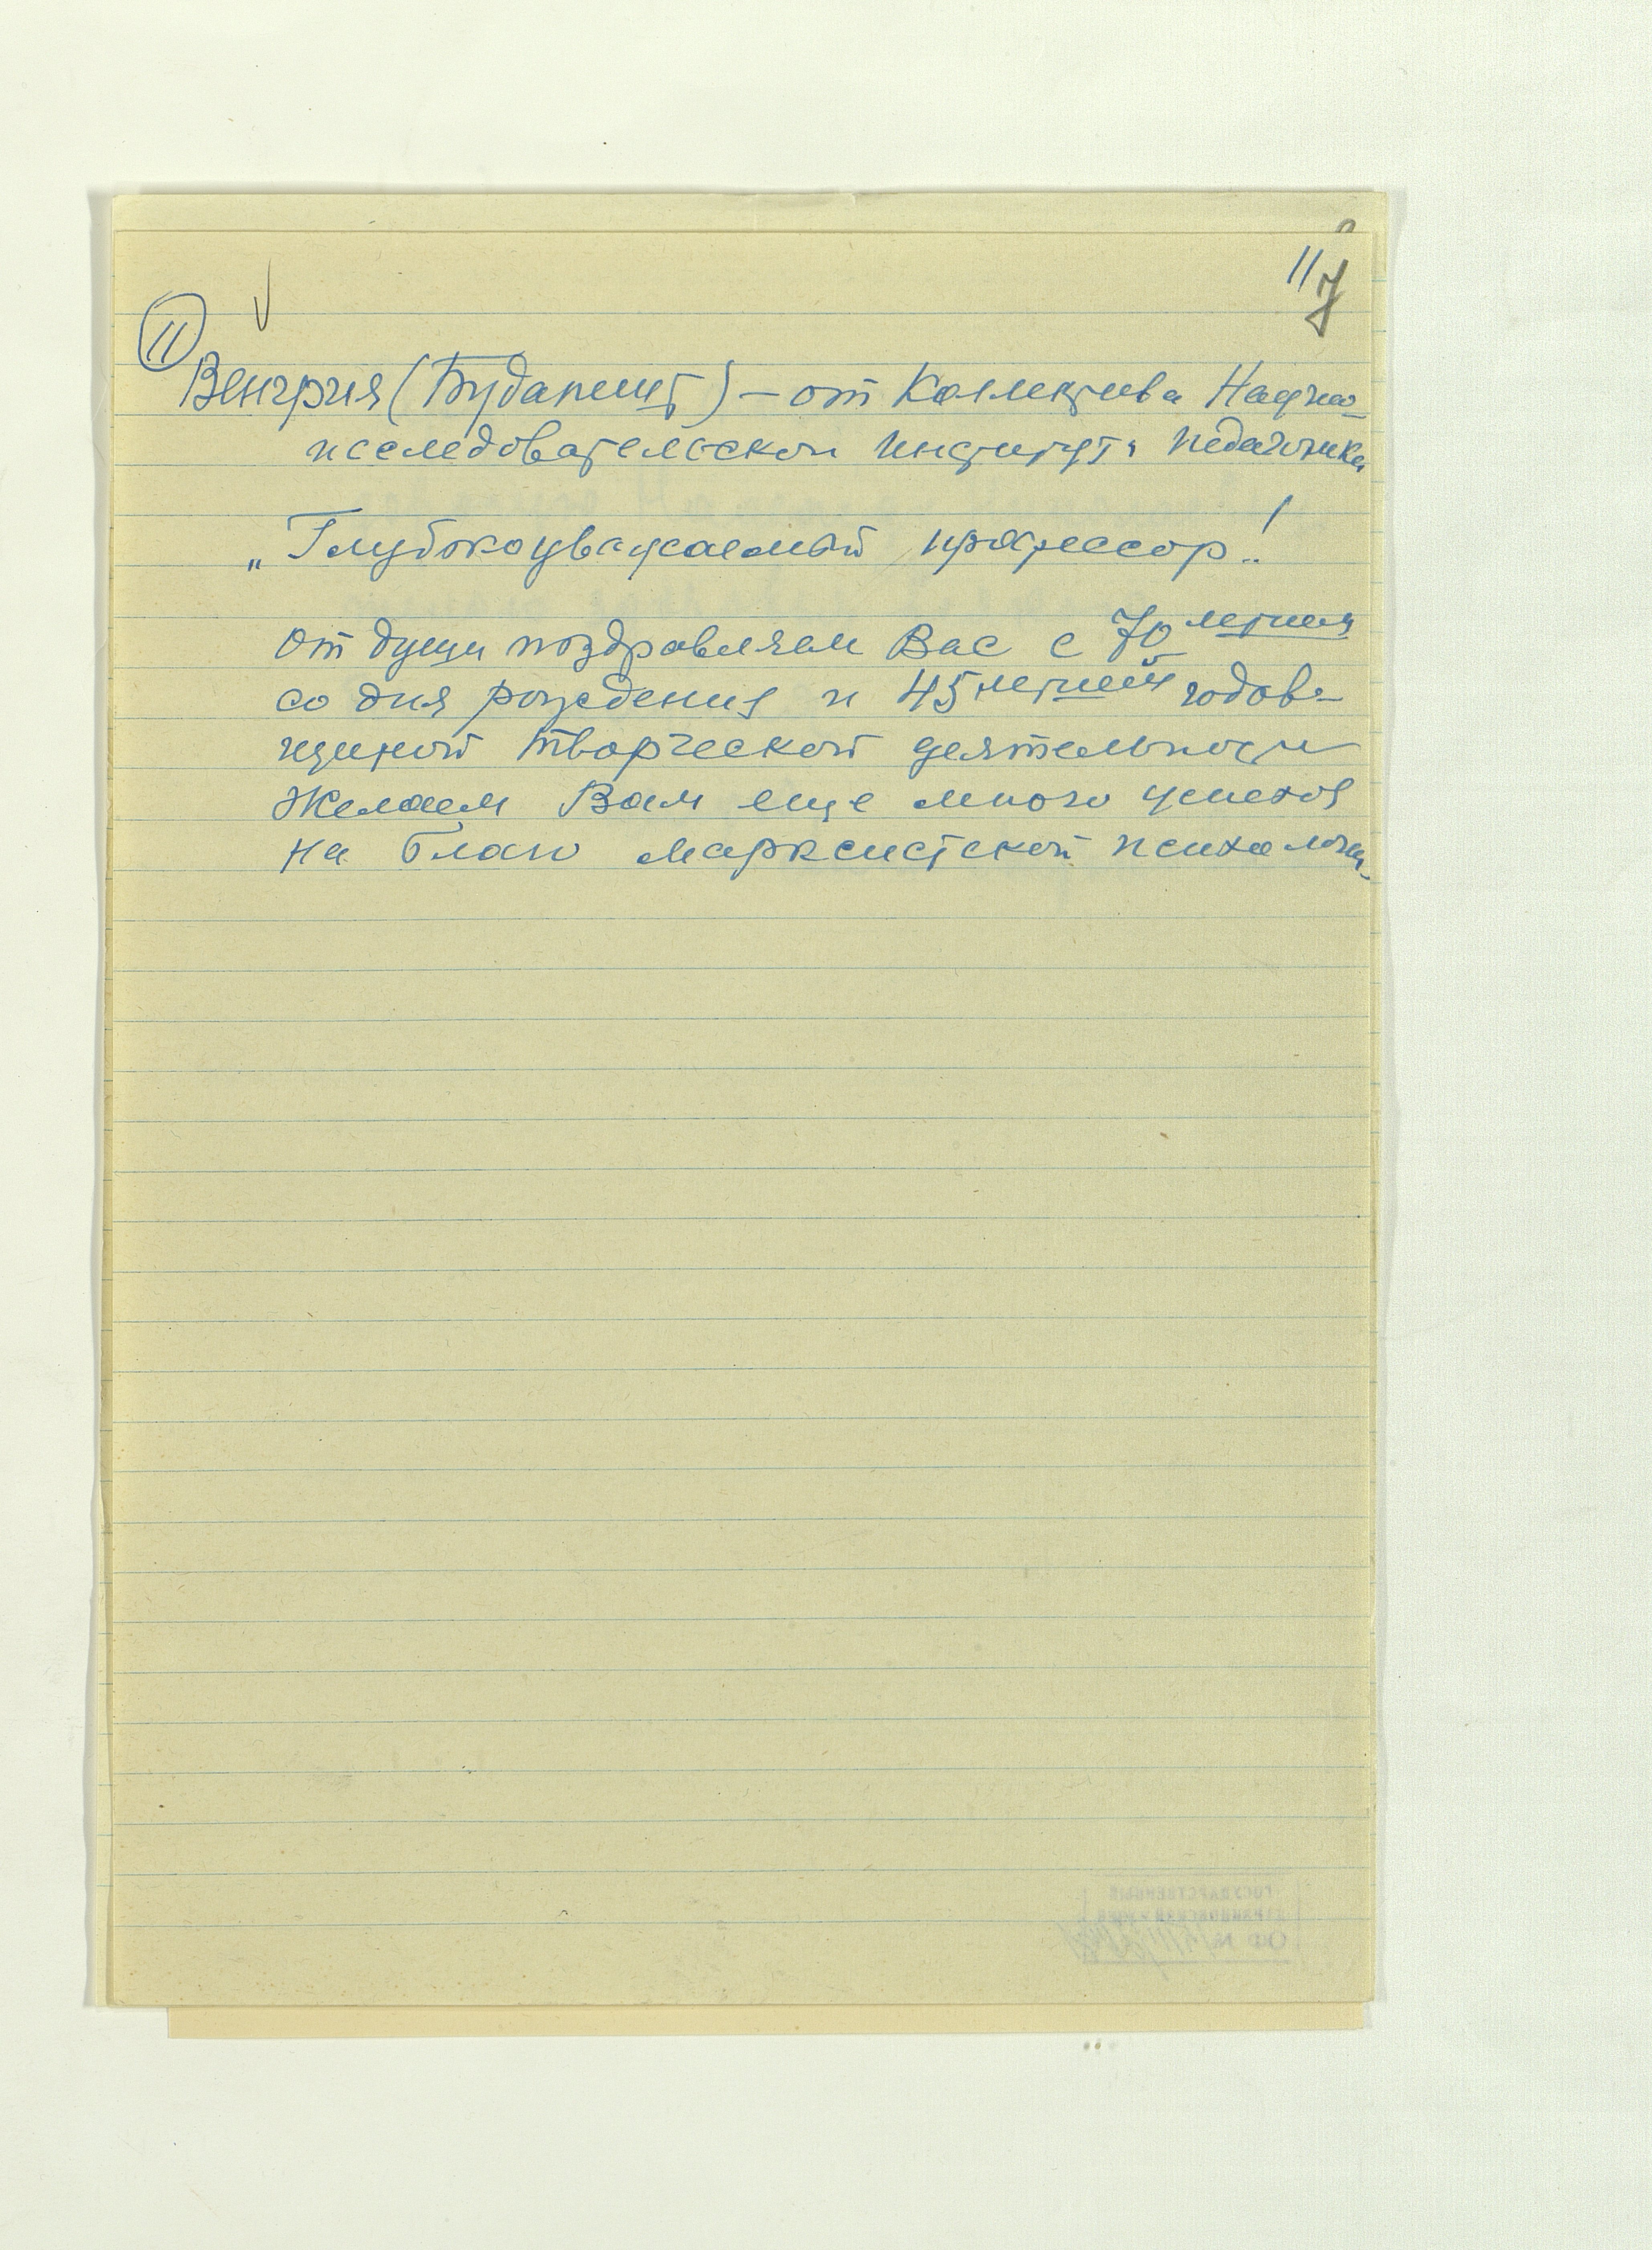 11
7
11
Венгрия (Будапешт) – от Коллектива Научно-
исследовательского института педагогики
„Глубокоуважаемый профессор!
От души поздравляем Вас с 70 летием
со дня рождения и 45 летней годов-
щиной творческой деятельности
Желаем Вам еще много успехов
на благо марксистской психологии.